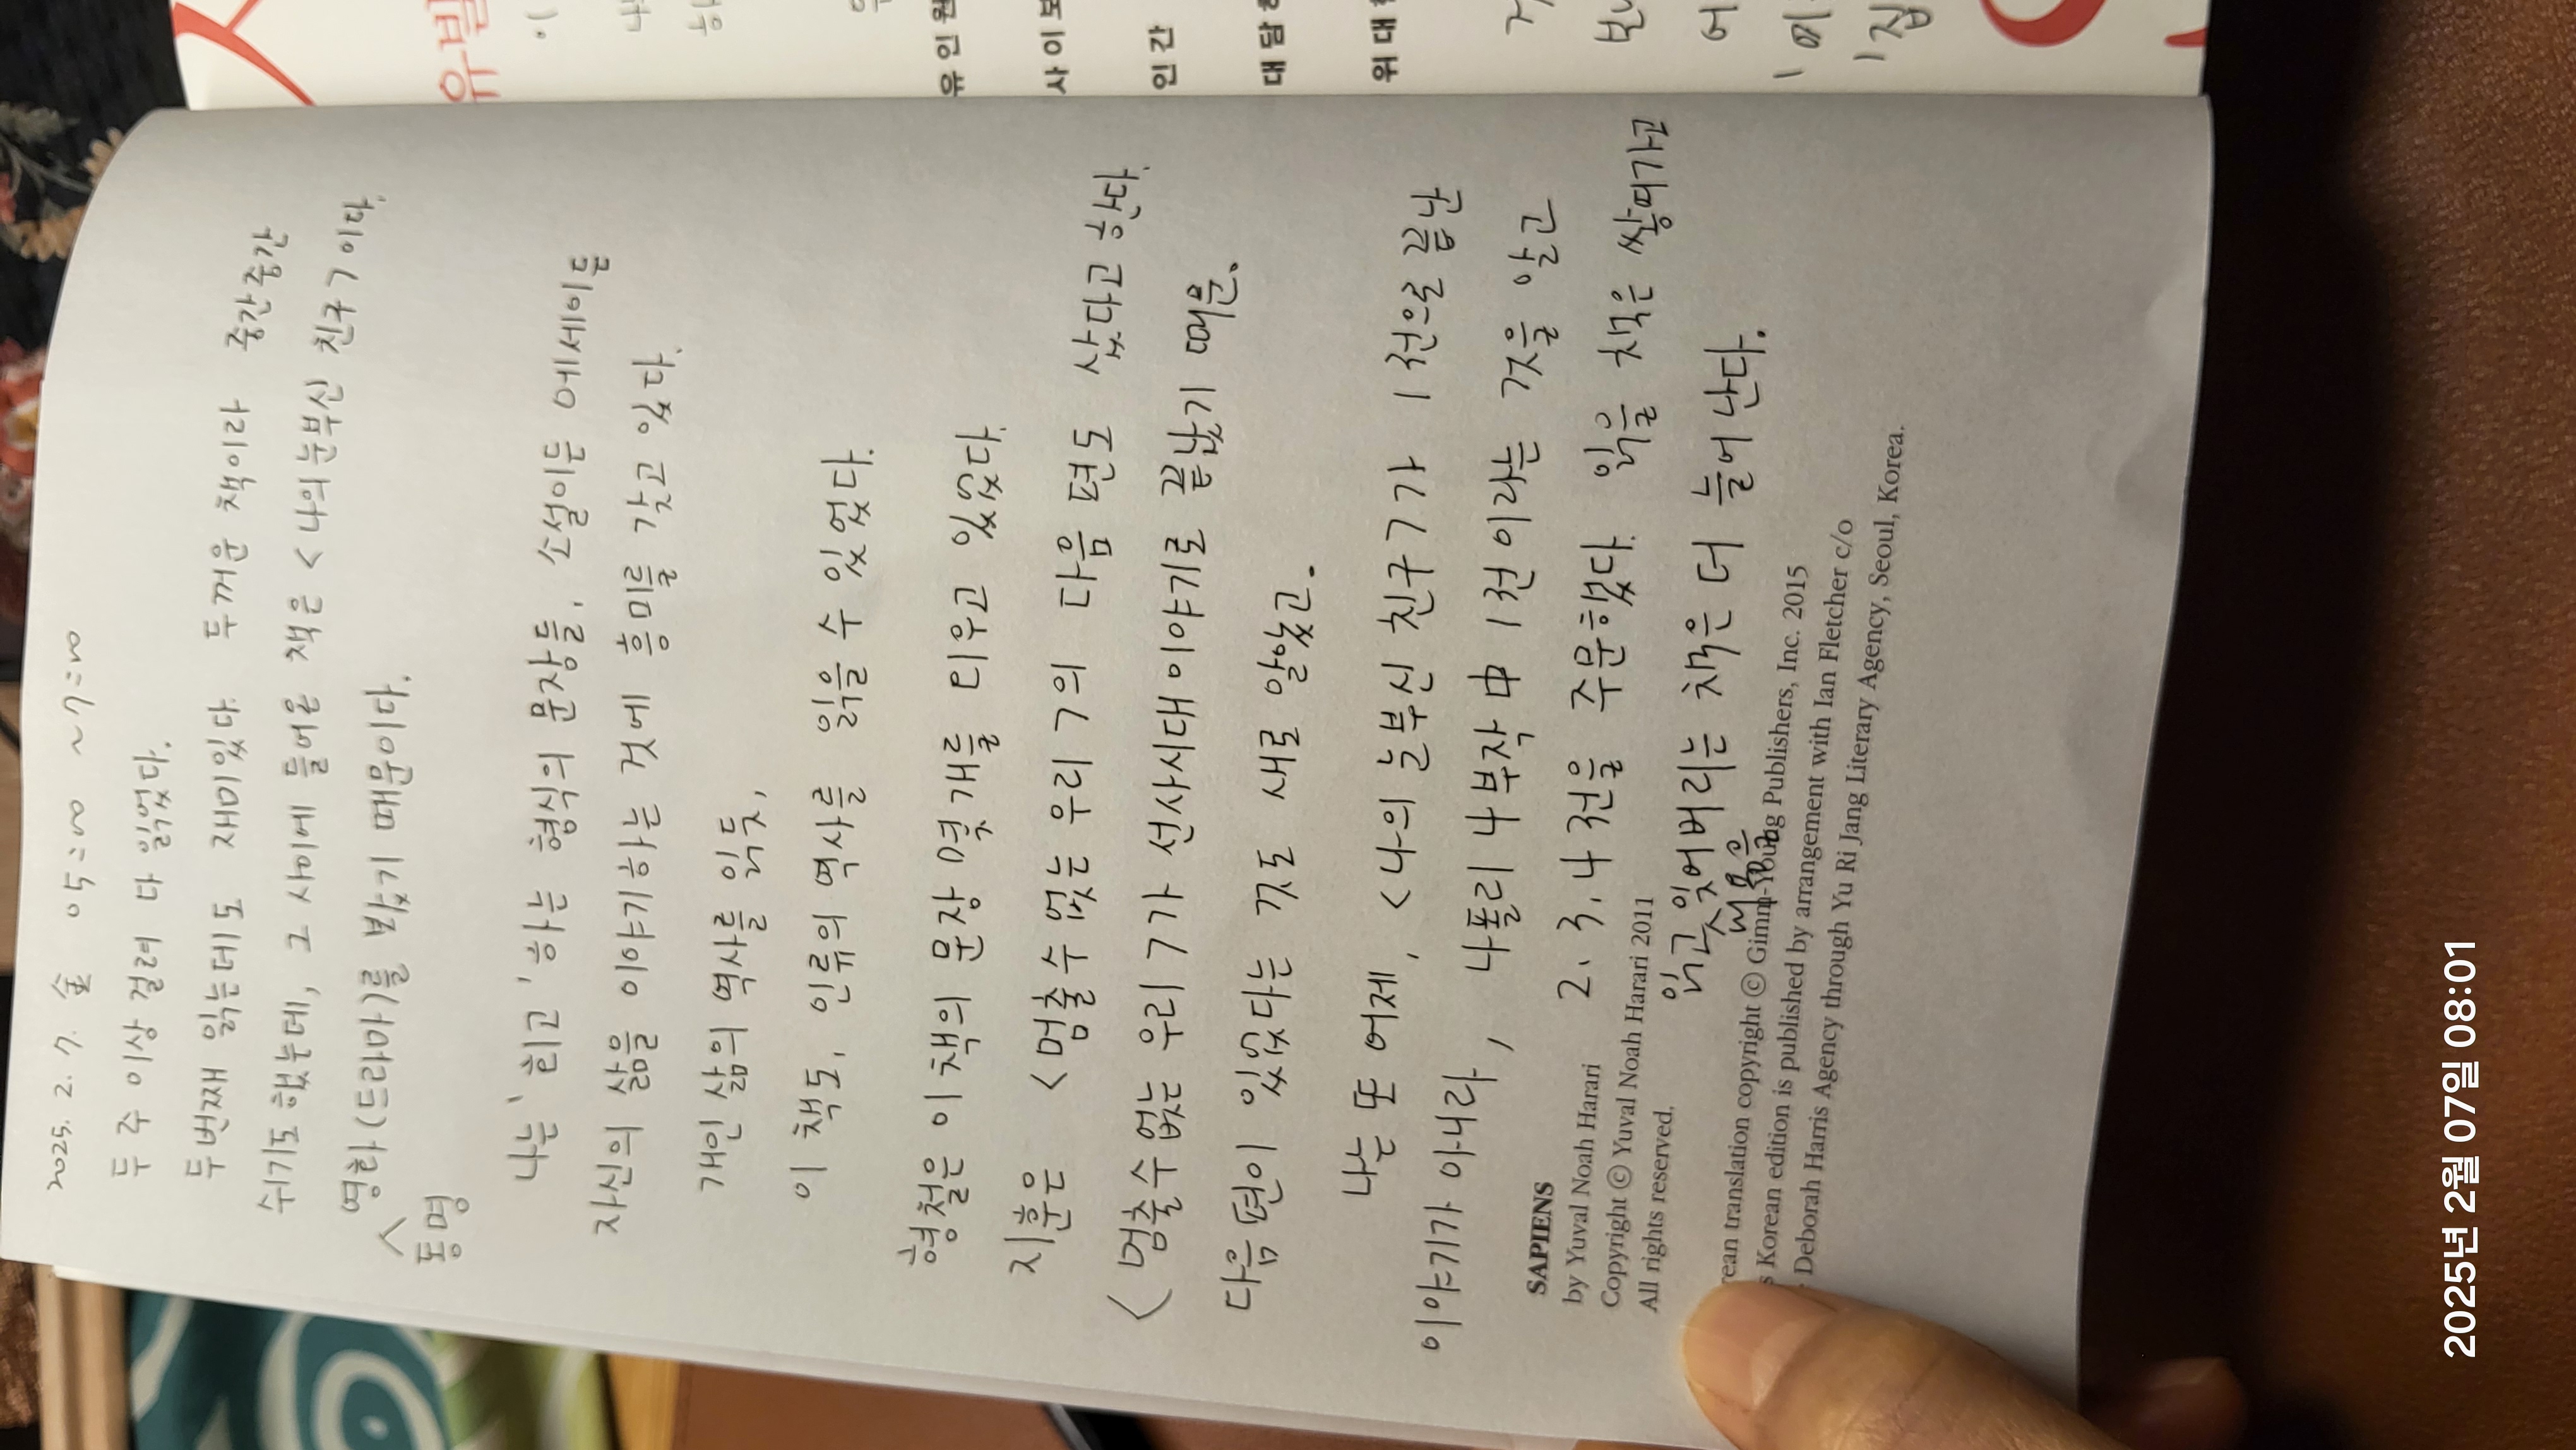 2025. 2. 7. 金 05:00 ~7:00
두 주 이상 걸려 다 읽었다.
두번째 읽는데도 재미있다. 두꺼운 책이라 중간중간
쉬기도 했는데, 그 사이에 들어온 책은 <나의 눈부신 친구>이다.
영화(드라마)를 봤기 때문이다.
동명
나는 '희고', 하는 형식의 문장들, 소설이든 에세이든
자신의 삶을 이야기하는 것에 흥미를 갖고 있다.
개인 삶의 역사를 읽듯,
이 책도, 인류의 역사를 읽을 수 있었다.
형철은 이 책의 문장 몇 개를 띄우고 있었다.
지훈은 <멈출 수 없는 우리>의 다음 편도 샀다고 한다.
<멈출 수 없는 우리>가 선사시대 이야기로 끝났기 때문.
다음 편이 있었다는 것도 새로 알았고.
나는 또 어제, <나의 눈부신 친구>가 1권으로 끝난
이야기가 아니라, 나폴리 4부작 中 1권이라는 것을 알고
2. 3. 4권을 주문했다. 읽을 책은 쌓여가고
읽고 잊어버리는 책은 더 늘어난다.
내용을
SAPIENS
by Yuval Noah Harari
Copyright © Yuval Noah Harari 2011
All rights reserved.
rean translation copyright © Gimm-Young Publishers, Inc. 2015
s Korean edition is published by arrangement with Ian Fletcher c/o
Deborah Harris Agency through Yu Ri Jang Literary Agency, Seoul, Korea.
유발
유인원
사이보
인간
대담
위대
2025년 2월 07일 08:01